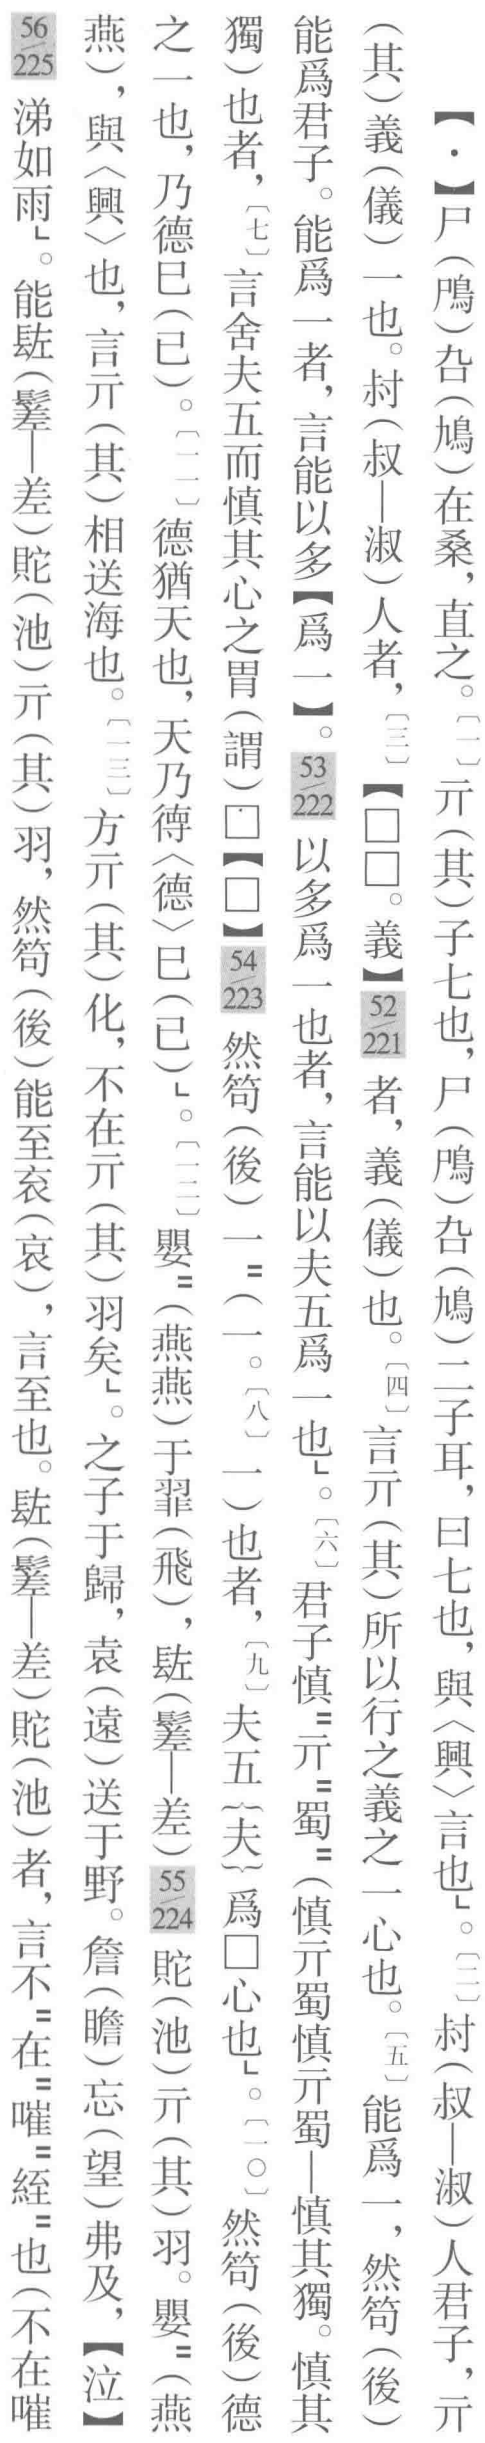 【·】尸（鳲）叴（鳩）在桑，直之。〔一〕亓（其）子七也，尸（鳲）叴（鳩）二子耳，曰七也，與〈興〉言也└。〔二〕𠬸（叔—淑）人君子，亓
（其）義（儀）一也。𠬸（叔—淑）人者，〔三〕【□□。義】52/221者，義（儀）也。〔四〕言亓（其）所以行之義之一心也。〔五〕能爲一，然笱（後）
能爲君子。能爲一者，言能以多【爲一】。53/222以多爲一也者，言能以夫五爲一也└。〔六〕君子慎〓亓〓蜀〓（慎亓蜀慎亓蜀—慎其獨。慎其
獨）也者，〔七〕言舍夫五而慎其心之胃（謂）□【□】54/223然笱（後）一〓（一。〔八〕一）也者，〔九〕夫五｛夫｝爲□心也└。〔一〇〕然笱（後）德
之一也，乃德巳（已）。〔一一〕德猶天也，天乃㝵〈德〉巳（已）└。〔一二〕嬰〓（燕燕）于罪（飛），䟐（鬖—差）55/224貤（池）亓（其）羽。嬰〓（燕
燕），與〈興〉也，言亓（其）相送海也。〔一三〕方亓（其）化，不在亓（其）羽矣└。之子于歸，袁（遠）送于野。詹（瞻）忘（望）弗及，【泣】
56/225涕如雨└。能䟐（鬖—差）貤（池）亓（其）羽，然笱（後）能至哀（哀），言至也。䟐（鬖—差）貤（池）者，言不〓在〓嗺〓絰〓也（不在嗺